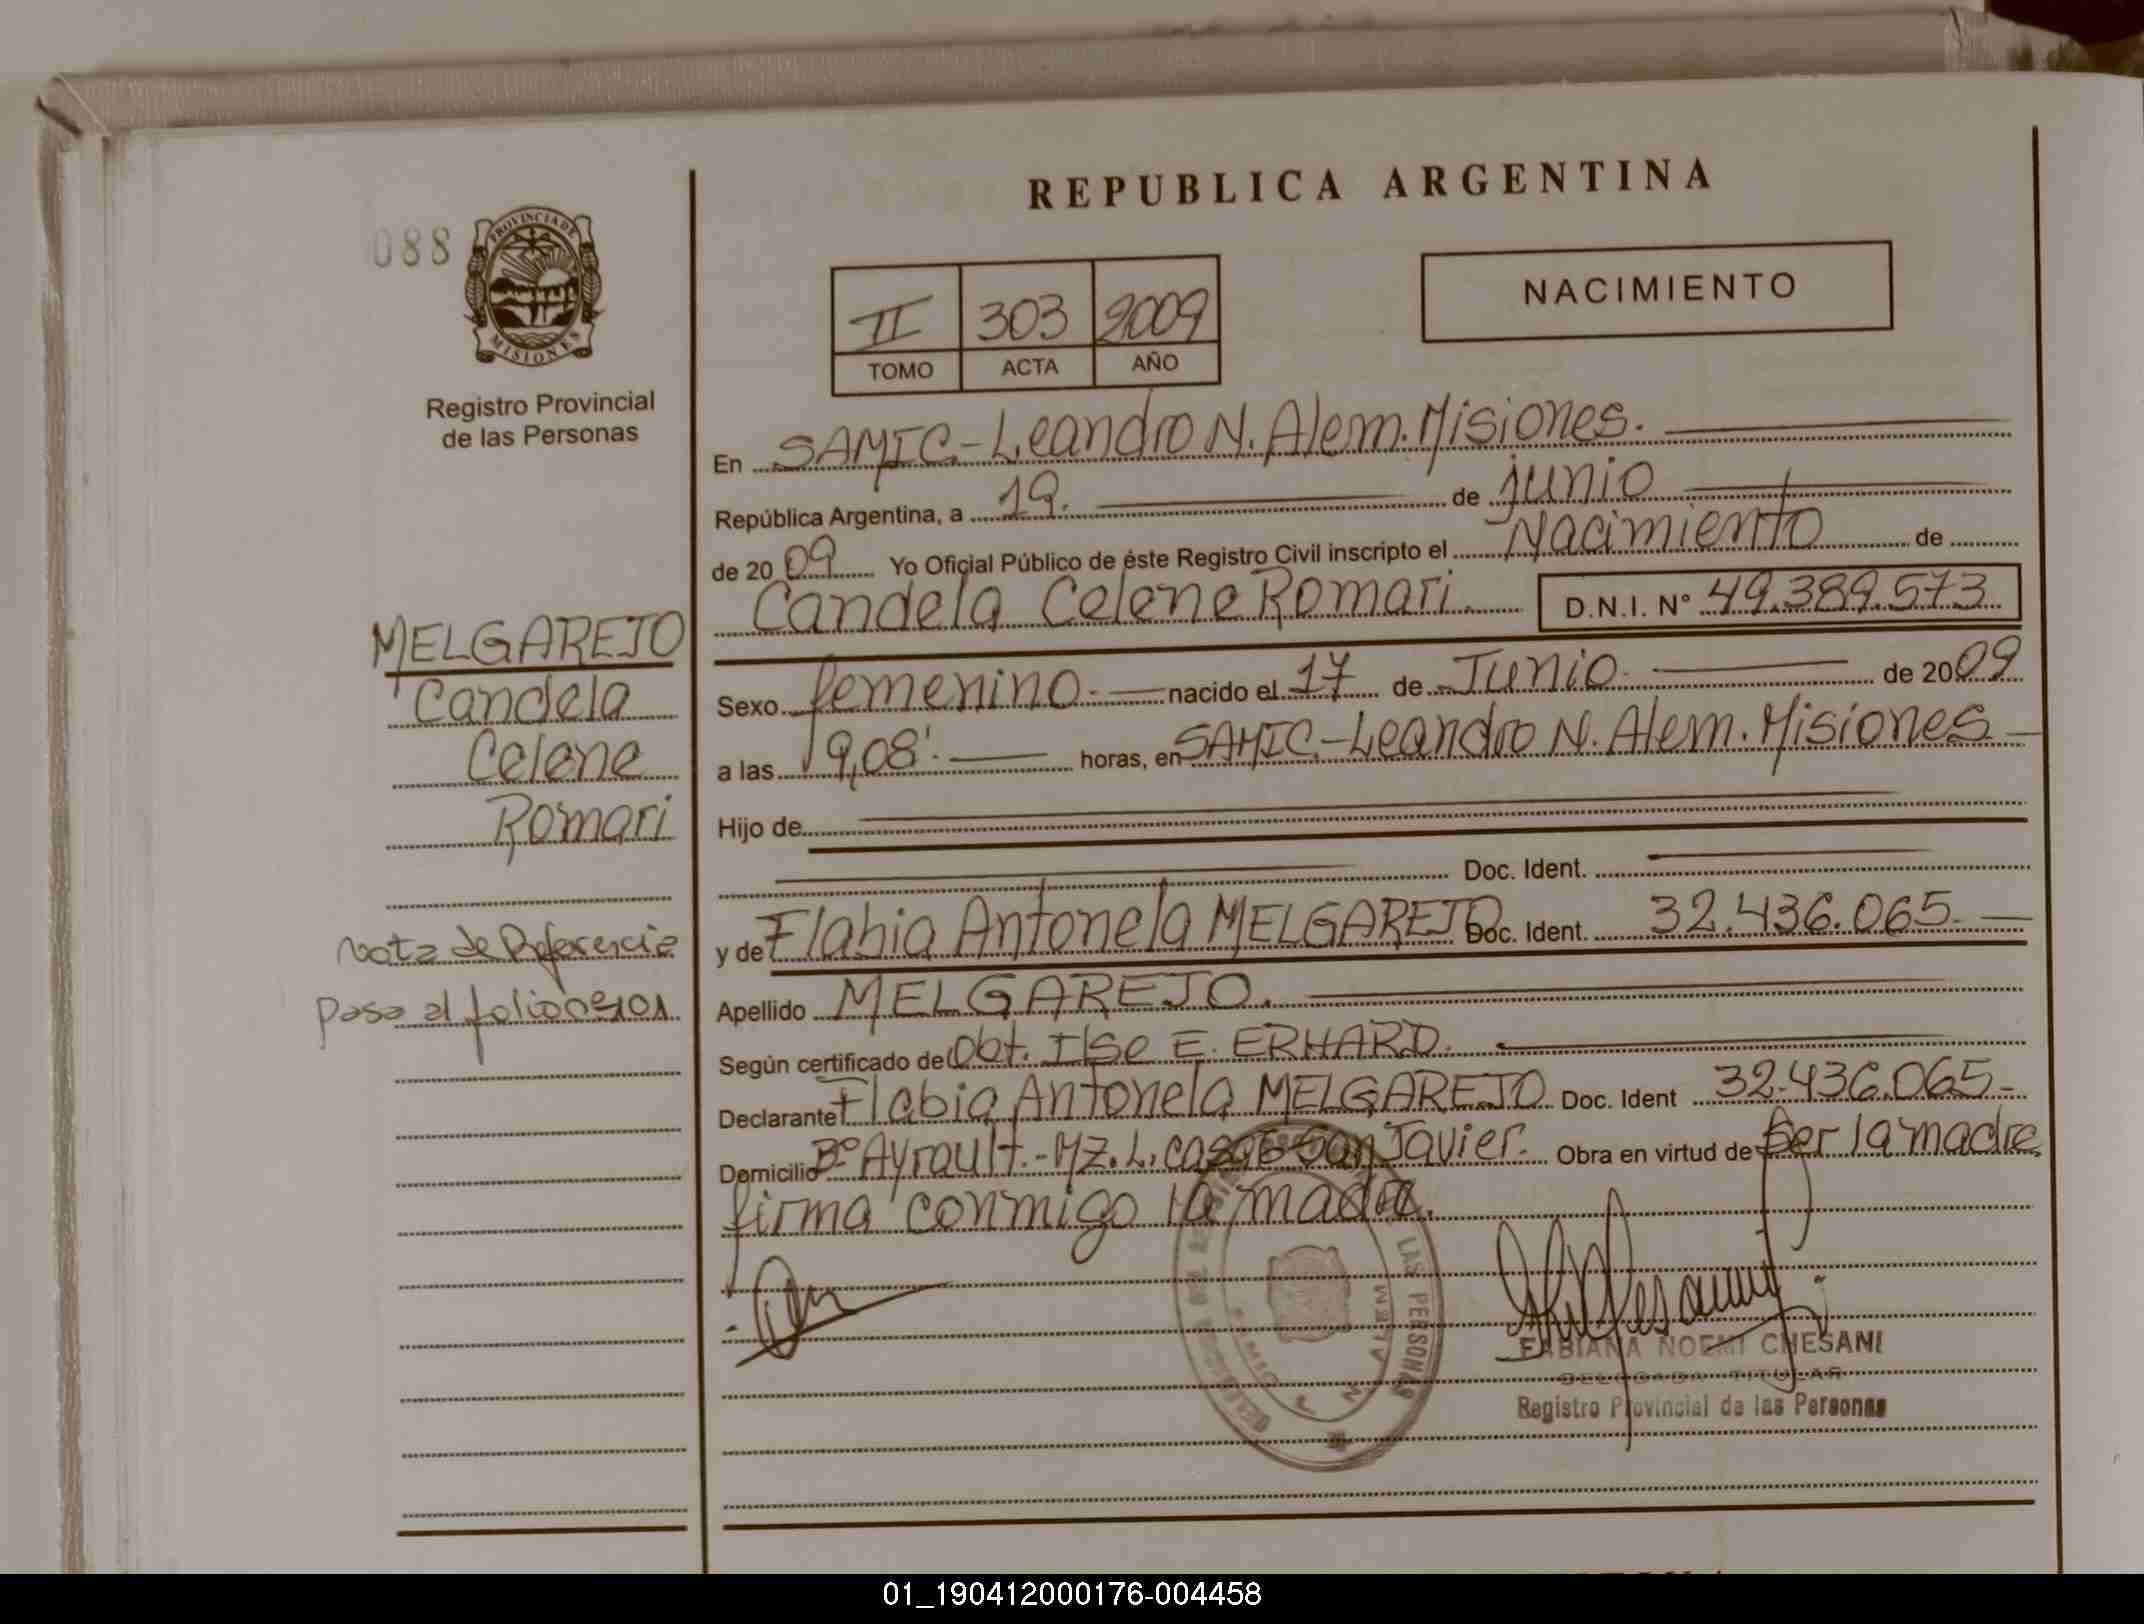 REPUBLICA ARGENTINA
088
PROVINCIA DE
MISIONES
Registro Provincial
de las Personas
NACIMIENTO
II 303 2009
TOMO ACTA AÑO
En SAMIC-Leandro N. Alem. Misiones.
República Argentina, a 19. de junio
de 2009 Yo Oficial Público de éste Registro Civil inscripto el Nacimiento de
Candela Celene Romari. D.N.I. N° 49.389.573
MELGAREJO
Candela
Celene
Romari
Sexo femenino.- nacido el 17 de Junio. de 2009
a las 19,08'. horas, en SAMIC.-Leandro N. Alem. Misiones
Hijo de
Doc. Ident.
y de Flabia Antonela MELGAREJO Doc. Ident. 32.436.065.
Nota de Referencia
pasa al folio
Apellido MELGAREJO.
Según certificado de Obt. Ilse E. ERHARD.
Declarante Flabia Antonela MELGAREJO Doc. Ident 32.436.065.-
Domicilio B° Ayrault.-MZ. L. casa San Javier. Obra en virtud de Ser la madre
firma conmigo la madre.
LAS PERSONAS
FABIANA NOEMI CHESANI
DELEGADA TITULAR
Registro Provincial de las Personas
01_190412000176-004458